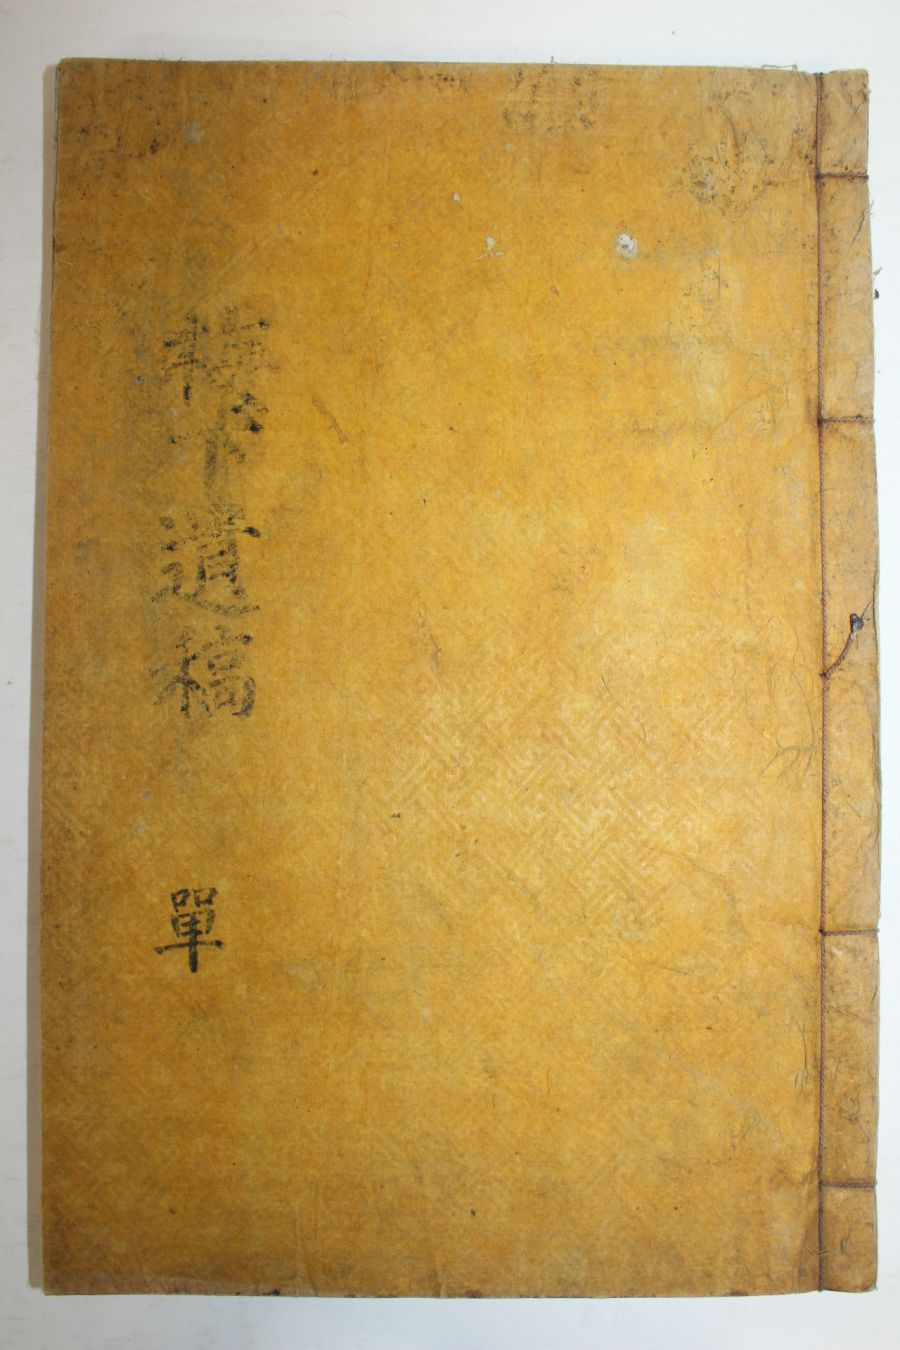 下遺稿
單